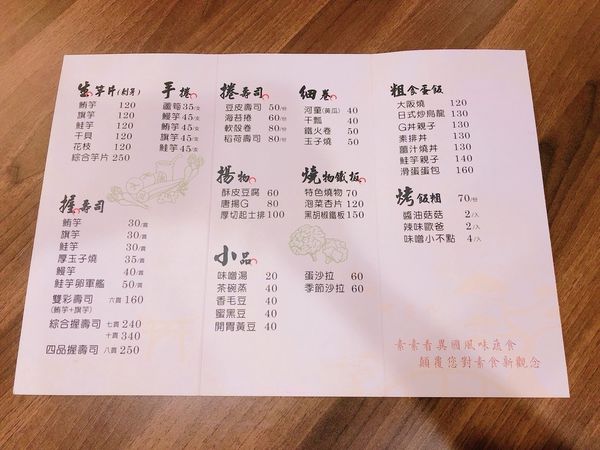 生竽片(刺身)
鮪竽 120
旗竽 120
鮭竽 120
干貝 120
花枝 120
綜合竽片 250
握壽司
鮪竽 30/貫
旗竽 30/貫
鮭竽 30/貫
厚玉子燒 35/貫
鰻竽 40/貫
鮭竽卵軍艦 50/貫
雙彩壽司 六貫 160
(鮪竽+旗竽)
綜合握壽司 七貫 240
十貫 340
四品握壽司 八貫 250
手捲
蘆筍 35/支
鰻竽 45/支
鮪竽 45/支
旗竽 45/支
鮭竽 45/支
捲壽司
豆皮壽司 50/份
海苔捲 60/份
軟殼卷 80/份
稻荷壽司 80/份
揚物
酥皮豆腐 60
唐揚G 80
厚切起士排 100
小品
味噌湯 20
茶碗蒸 40
香毛豆 40
蜜黑豆 40
開胃黃豆 40
細卷
河童(黃瓜) 40
干瓢 40
鐵火卷 50
玉子燒 50
燒物鐵板
特色燒物 70
泡菜杏片 120
黑胡椒鐵板 150
蛋沙拉 60
季節沙拉 60
粗食蛋飯
大阪燒 130
日式炒烏龍 120
G丼親子 130
素排丼 130
薑汁燒丼 130
鮭竽親子 140
滑蛋蛋包 160
烤飯糰 70/份
醬油菇菇 2/入
辣味歐爸 2/入
味噌小不點 4/入
素素看異國風味蔬食
顛覆您對素食新觀念